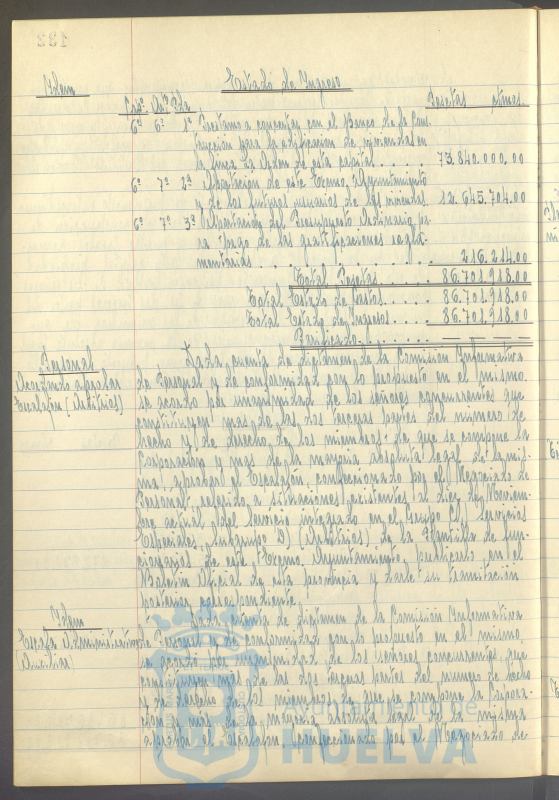 133
Idem
Estado de Ingreso
Capº. Artº. Pda.
Pesetas ctmos.
6º 6º 1º Prestamo a concertar con el Banco de la Cons-
trucción para la edificación de viviendas en
la finca La Orden de esta capital . . . . . 73.840.000.00
6º 7º 2º Aportación de este Excmo. Ayuntamiento
y de los futuros usuarios de las viviendas. 12.645.704.00
6º 7º 3º Aportación del Presupuesto Ordinario pa-
ra pago de las gratificaciones regla-
mentarias . . . . . 216.214.00
Total Pesetas . . . . . 86.701.918.00
Total Estado de Gastos . . . . . 86.701.918.00
Total Estado de Ingresos . . . . . 86.701.918.00
Personal
Acordando aprobar
Escalafon (Arbitrios)
Dada cuenta de dictamen de la Comisión Informativa
de Personal y de conformidad con lo propuesto en el mismo,
se acordó por unanimidad de los señores concurrentes que
constituyen mas de las dos terceras partes del número de
hecho y de derecho de los miembros de que se compone la
Corporación y mas de la mayoria absoluta legal de la mis-
ma, aprobar el Escalafón confeccionado por el Negociado de
Personal referido a situaciones existentes al diez de Noviem-
bre actual, del Servicio integrado en el Grupo C) Servicios
Especiales, Subgrupo D) (Arbitrios) de la Plantilla de fun-
cionarios de este Excmo. Ayuntamiento, publicarlo en el
Boletin Oficial de esta provincia y darle su tramitación
posterior correspondiente.
Idem
Escala Administrativa
(Auxiliar)
Dada cuenta de dictamen de la Comisión Informativa
de Personal y de conformidad con lo propuesto en el mismo,
se acordó por unanimidad de los señores concurrentes que
constituyen más de las dos terceras partes del número de hecho
y de derecho de los miembros de que se compone la Corpora-
ción y más de la mayoria absoluta legal de la misma
aprobar el Escalafón confeccionado por el Negociado de
Ayuntamiento de
HUELVA